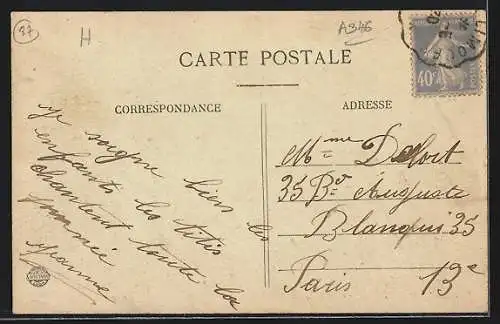 37
H
A346
CARTE POSTALE
CORRESPONDANCE
ADRESSE
40c
je soigne bien les
enfants les titis
chantent toute la
journée
Jeanne
Mme Delort
35 Bd Auguste
Blanqui 35
Paris 13e